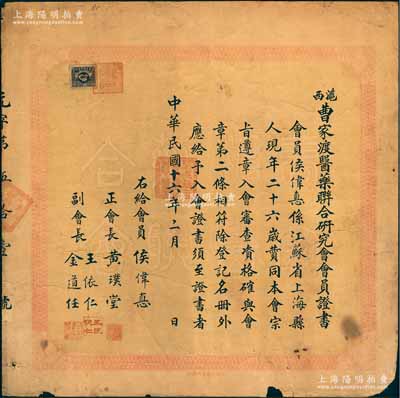 滬西曹家渡醫藥聯合研究會會員證書
會員侯偉惪係江蘇省上海縣
人現年二十六歲贊同本會宗
旨遵章入會審查資格確與會
章第二條相符除登記名冊外
應給予入會證書須至證書者
右給會員 侯偉惪
正會長 黃璞堂
副會長 王依仁
金道任
中華民國十六年二月 日
元字第伍拾壹號
上海陽明拍賣
上海陽明拍賣